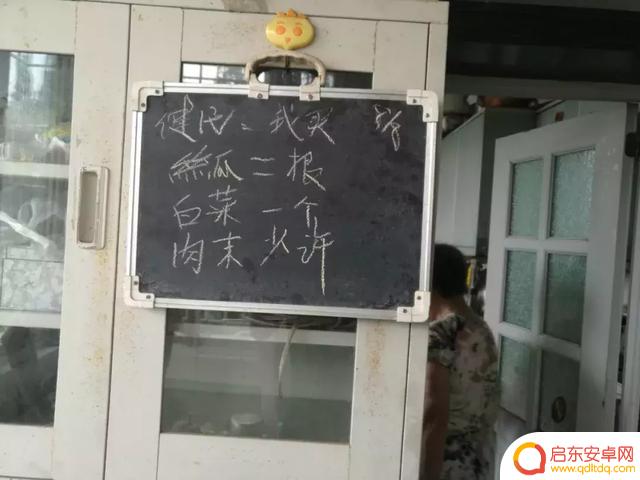 健民、我买
絲瓜二根
白菜一个
肉末少许
启东安卓网
www.qdltdq.com